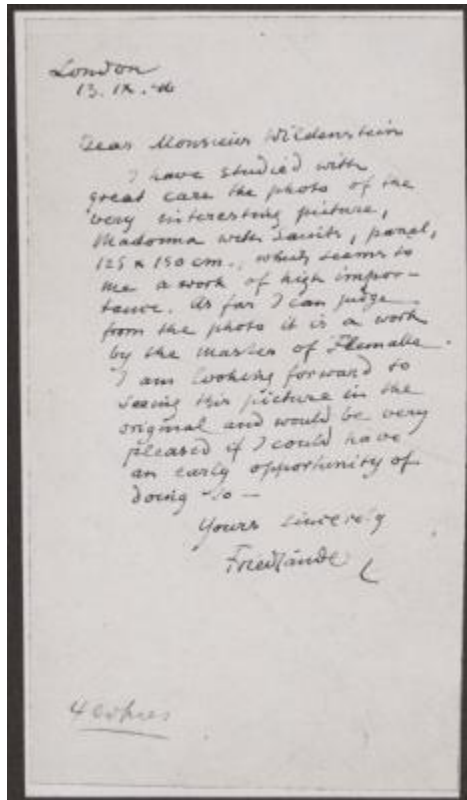 London
13. IX.
Dear Monsieur Wildenstein
I have studied with
great care the photo of the
very interesting picture,
Madonna with Saints, panel,
125 x 150 cm., which seems to
me a work of high impor-
tance. As far I can judge
from the photo it is a work
by the Master of Flemalle.
I am looking forward to
seeing this picture in the
original and would be very
pleased if I could have
an early opportunity of
doing so —
Yours sincerely
Friedländer
4 copies